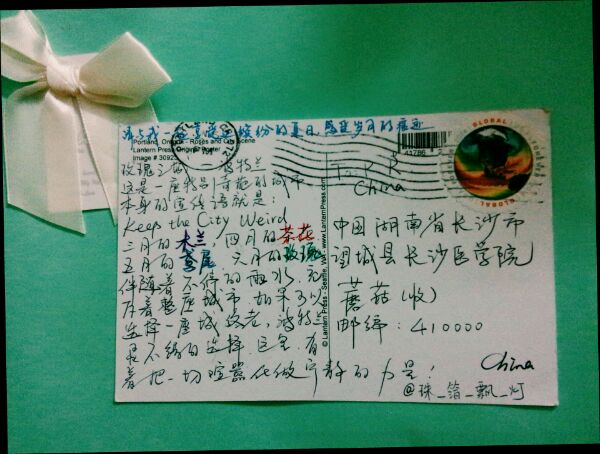 请与我一起享受这缤纷的夏日,感受岁月的痕迹
Portland, Oregon - Roses and City Scene
Lantern Press Original Poster
Image # 3092
玫瑰之城 波特兰
这是一座特别奇葩的城市
本身的宣传语就是:
Keep the City Weird
三月的木兰,四月的茶花
五月的鸢尾 六月的玫瑰
伴随着不停的雨水,充
斥着整座城市 如果可以
选择一座城终老,波特兰
是不错的选择 这里,有
着把一切喧嚣化做宁静的力量!
© Lantern Press - Seattle, WA - www.LanternPress.com
43786
To: P. R.
China
GLOBAL
FOREVER
GLOBAL
中国湖南省长沙市
望城县长沙医学院
蘑菇(收)
邮编:410000
China
@珠_箔_飘_灯